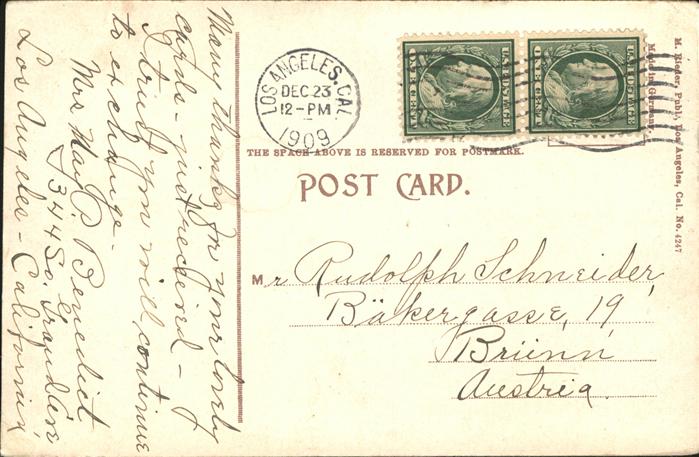 Many thanks for your lovely
cards - just received -
I trust you will continue
to exchange -
Mrs May P. Benedict
1344 So.
Los Angeles - California
LOS ANGELES, CAL
DEC 23
12 - PM
1909
U.S. POSTAGE
ONE CENT
U.S. POSTAGE
ONE CENT
M. Rieder, Publ., Los Angeles, Cal. No. 4247
Made in Germany.
THE SPACE ABOVE IS RESERVED FOR POSTMARK.
POST CARD.
Mr Rudolph Schneider,
Bäkergasse, 19,
Brünn
Austria.